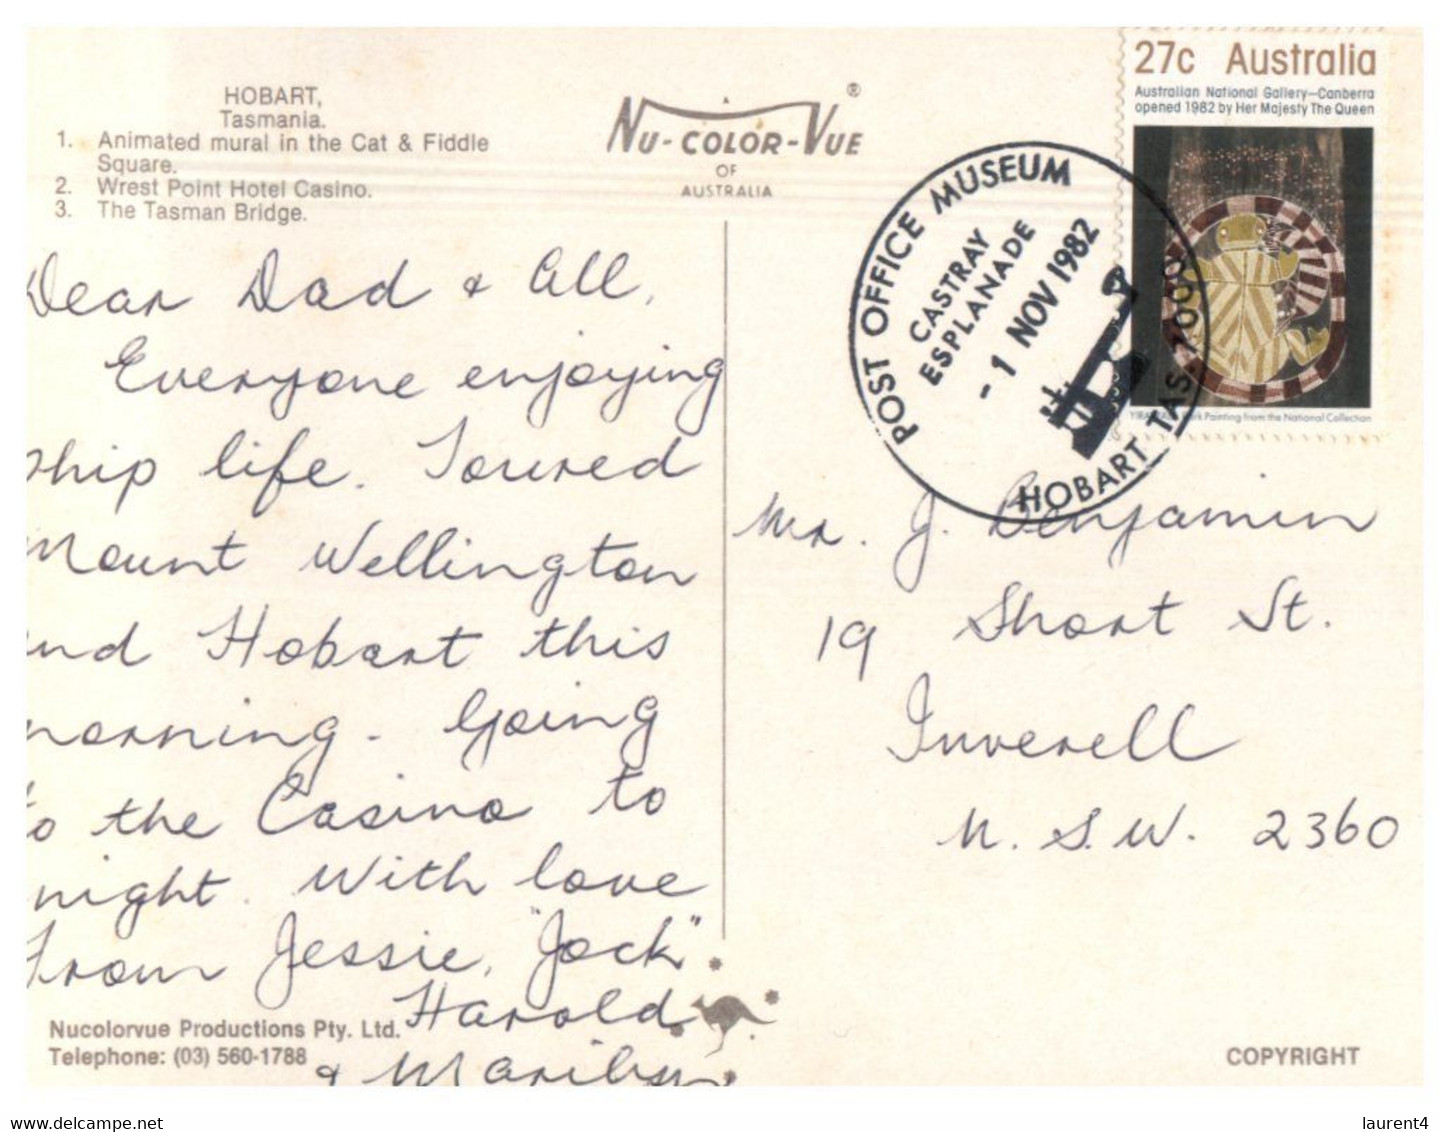 HOBART,
Tasmania.
1. Animated mural in the Cat & Fiddle
Square.
2. Wrest Point Hotel Casino.
3. The Tasman Bridge.
A
NU-COLOR-VUE ®
OF
AUSTRALIA
27c Australia
Australian National Gallery—Canberra
opened 1982 by Her Majesty The Queen
Bark Painting from the National Collection
POST OFFICE MUSEUM
CASTRAY
ESPLANADE
- 1 NOV 1982
HOBART TAS. 7000
Dear Dad & All,
Everyone enjoying
ship life. Toured
Mount Wellington
and Hobart this
morning. Going
to the Casino to
night. With love
From Jessie, "Jock"
Harold
& Marilyn
Mr. J. Benjamin
19 Short St.
Inverell
N.S.W. 2360
Nucolorvue Productions Pty. Ltd.
Telephone: (03) 560-1788
COPYRIGHT
www.delcampe.net
laurent4